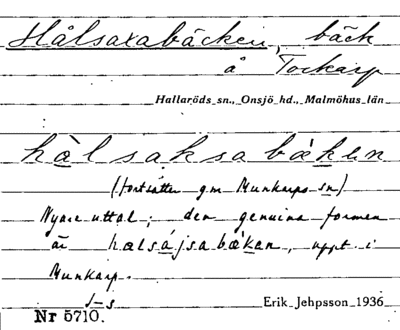 Hålsaxabäcken, bäck
å Torkarp
Hallaröds sn., Onsjö hd., Malmöhus län
hàlsaksabækən
(fortsätter gm Munkarps sn)
Nyare uttal; den genuina formen
är halsájsabækan, uppt. i
Munkarp.
J-s
Erik Jehpsson 1936
Nr 5710.